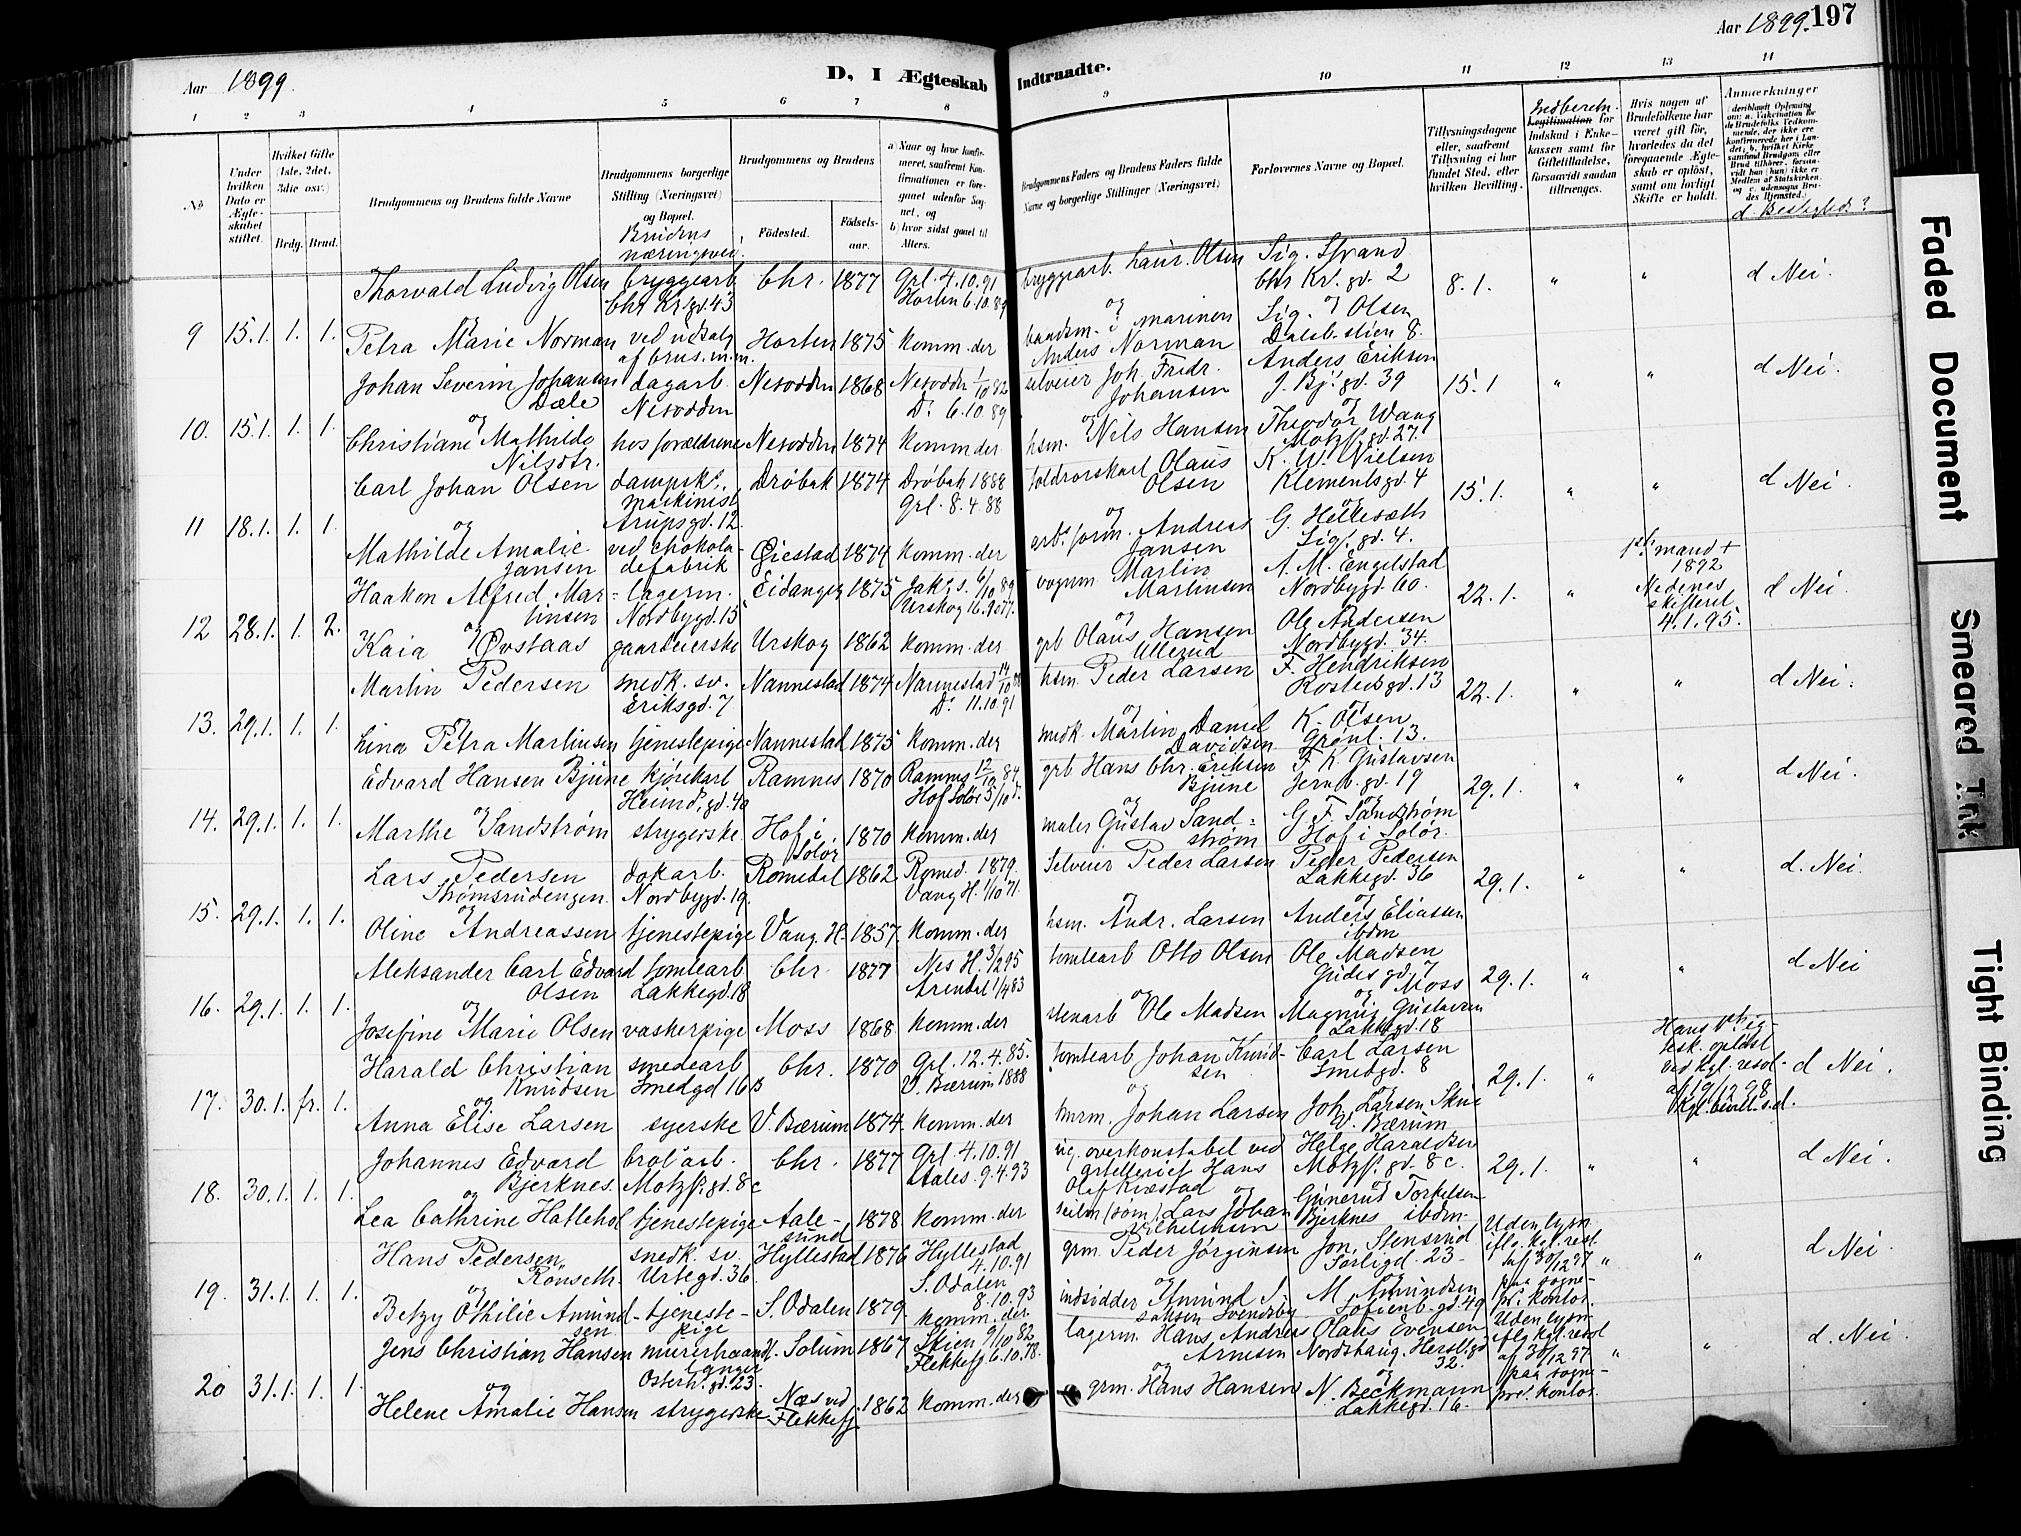 Aar 1899.
D, I Ægteskab Indtraadte.
Aar 1899. 197
1 2 3 4 5 6 7 8 9 10 11 12 13 14
No
Under hvilken Dato er Ægteskabet stiftet.
Hvilket Gifte (1ste, 2det, 3die osv.)
Brdg. Brud.
Brudgommens og Brudens fulde Navne
Brudgommens borgerlige Stilling (Næringsvei) og Bopæl.
Brudens næringsvei.
Brudgommens og Brudens
Fødested.
Fødselsaar.
a) Naar og hvor konfirmeret, saafremt Konfirmationen er foregaaet udenfor Sognet, og
b) hvor sidst gaaet til Alters.
Brudgommens Faders og Brudens Faders fulde Navne og borgerlige Stillinger (Næringsvei)
Forlovernes Navne og Bopæl.
Tillysningsdagene eller, saafremt Tillysning ei har fundet Sted, efter hvilken Bevilling.
Indberetn.
Legitimation for Indskud i Enkekassen samt for Giftetilladelse, forsaavidt saadan tiltrænges.
Hvis nogen af Brudefolkene har været gift før, hvorledes da det foregaaende Ægteskab er opløst, samt om lovligt Skifte er holdt.
Anmærkninger
d. Beslegted?
Thorvald Ludvig Olsen bryggearb. Chr. Kr. gd. 43 Chr. 1877 Grl. 4.10.91 Horten 6.10.89 bryggearb. Laur. Olsen Sig. Strand Chr. Kr. gd. 2 8.1. " " d Nei.
9 15.1. 1. 1. og
Petra Marie Norman ved udsalg af brus. m.m. Horten 1875 komm. der baadsm. i marinen Anders Norman Sig. Olsen Dalsb. stien 8.
Johan Severin Johansen Dæle dagarb. Nesodden Nesodden 1868 Nesodden 1/10 82 Do 6.10.89 selveier Joh. Fredr. Johansen Anders Eriksen J. Bj. gd. 39 15.1 " " d Nei.
10. 15.1. 1. 1. og
Christiane Mathilde Nilsdtr. hos forældrene Nesodden 1874 komm der hsm. Nils Hansen Theodor Wang Motzf. gd. 27.
Carl Johan Olsen dampsk. maskinist Arupsgd. 12. Drøbak 1874 Drøbak 1888 Grl. 8.4.88 toldrorskarl Olaus Olsen K. W. Nielsen Klementsgd. 4 15.1. " " d Nei.
11 18.1. 1. 1. og
Mathilde Amalie Jansen ved chokoladefabrik Øiestad 1874 komm. der arb. form. Andreas Jansen G. Hellesæth Sig. gd. 4.
Haakon Alfred Martinsen lagerm. Nordbygd. 15 Eidanger 1875 Jak. s. 6/10 89 Urskog 16.9.077. vognm Martin Martinsen A. M. Engelstad Nordbygd. 60. 22.1. " 1ste mand + 1892 Nedenes skifteret 4.1.95. d Nei.
12 28.1. 1. 2. og
Kaia Øvstaas gaardeierske Urskog 1862 komm. der grb Olaus Hansen Ullerud Ole Andersen Nordbygd. 34.
Martin Pedersen snedk. sv. Eriksgd. 7 Nannestad 1874 Nannestad 14/10 88 Do 11.10.91 hsm. Peder Larsen F. Hendriksen Rostedsgd. 13 22.1. " " d Nei.
13. 29.1. 1. 1. og
Lina Petra Martinsen tjenestepige Nannestad 1875 komm. der snedk. Martin Daniel Davidsen K. Olsen Grønl. 13.
Edvard Hansen Bjune kjørekarl Heimd. gd. 40 Ramnes 1870 Ramnes 12/10 84. Hof Solør 5/10 d. grb Hans Chr. Eriksen Bjune F. K. Gustavsen Jernb. gd. 19 29.1. " " d Nei.
14. 29.1. 1. 1. og
Marthe Sandstrøm strygerske Hof i Solør 1870 komm. der maler Gustav Sandstrøm G. F. Sandstrøm Hof i Solør.
Lars Pedersen Strømsrudengen. dokarb. Nordbygd. 19. Romedal 1862 Romed. 1879. Vang H. 1/10 71. Selveier Peder Larsen Peder Pedersen Lakkegd. 36 29.1. " " d. Nei.
15. 29.1. 1. 1. og
Oline Andreassen tjenestepige Vang. H. 1857. komm. der hsm. Andr. Larsen Anders Eliassen ibdm
Aleksander Carl Edvard Olsen tomtearb. Lakkegd. 18 Chr. 1877 Nes H. 3/2 95 Arendal 1/4 83 tomtearb Otto Olsen Ole Madsen Gudes gd. 7 Moss 29.1. " " d Nei
16. 29.1. 1. 1. og
Josefine Marie Olsen vaskerpige Moss 1868 komm. der stenarb Ole Madsen Magnus Gustavsen Lakkegd. 18
Harald Christian Knudsen smedearb Smedgd 16B Chr. 1870 Grl. 12.4.85. V. Bærum 1888 tomtearb Johan Knudsen Carl Larsen Smedgd. 8 29.1. " Hans ægtesk. opløst ved kgl. resol. af 19/12 98 d Nei.
17. 30.1. fr. 1. og
Anna Elise Larsen syerske V. Bærum 1874. komm. der tmrm. Johan Larsen Joh. Larsen Skui V. Bærum
Johannes Edvard Bjerknes. brol. arb. Motzf. gd. 8c Chr. 1877 Grl. 4.10.91 Stales. 9.4.93 ug. overkonstabel ved artelleriet Hans Olaf Kiæstad Helge Haraldsen Motzf. gd. 8c. 29.1. " " d Nei.
18. 30.1. 1. 1. og
Lea Cathrine Hatlehol tjenestepige Aalesund 1878 komm. der seilm (søm) Lars Johan Vilhelmsen Gunerud Torkelsen Bjerknes ibdm.
Hans Pedersen Rønseth. snedk. sv. Urtegd. 36. Hyllestad 1876 Hyllestad 4.10.91 S. Odalen 8.10.93 grm. Peder Jørginsen Jon. Stensrud Sorligd. 23 Uden lysn. iflg. kgl. res. af 30/12 97 paa sognepr. kontor. " " d Nei.
19. 31.1. 1. 1. og
Betzy Othilie Amundsen tjenestepige S. Odalen 1879 komm. der. indsidder Amund Isaksen Svendsby M. Amundsen Sofienb. gd. 49
Jens Christian Hansen murerhaandlanger Osterh. gd. 23. V. Solum 1867 Skien 9/10 82 Flekkefj. 6.10.78. lagerm. Hans Andreas Arnesen Olaus Evensen Nordshaug. Hersl. gd 32. Uden lysn. iflg kgl. resol af 30/12 97 paa sognepr. kontor. " " d. Nei.
20 31.1. 1. 1. og
Helene Amalie Hansen strygerske Næs ved Flekkefj. 1862 komm. der grm. Hans Hansen N. Beckmann Lakkegd. 16.
Faded Document
Smeared Ink
Tight Binding